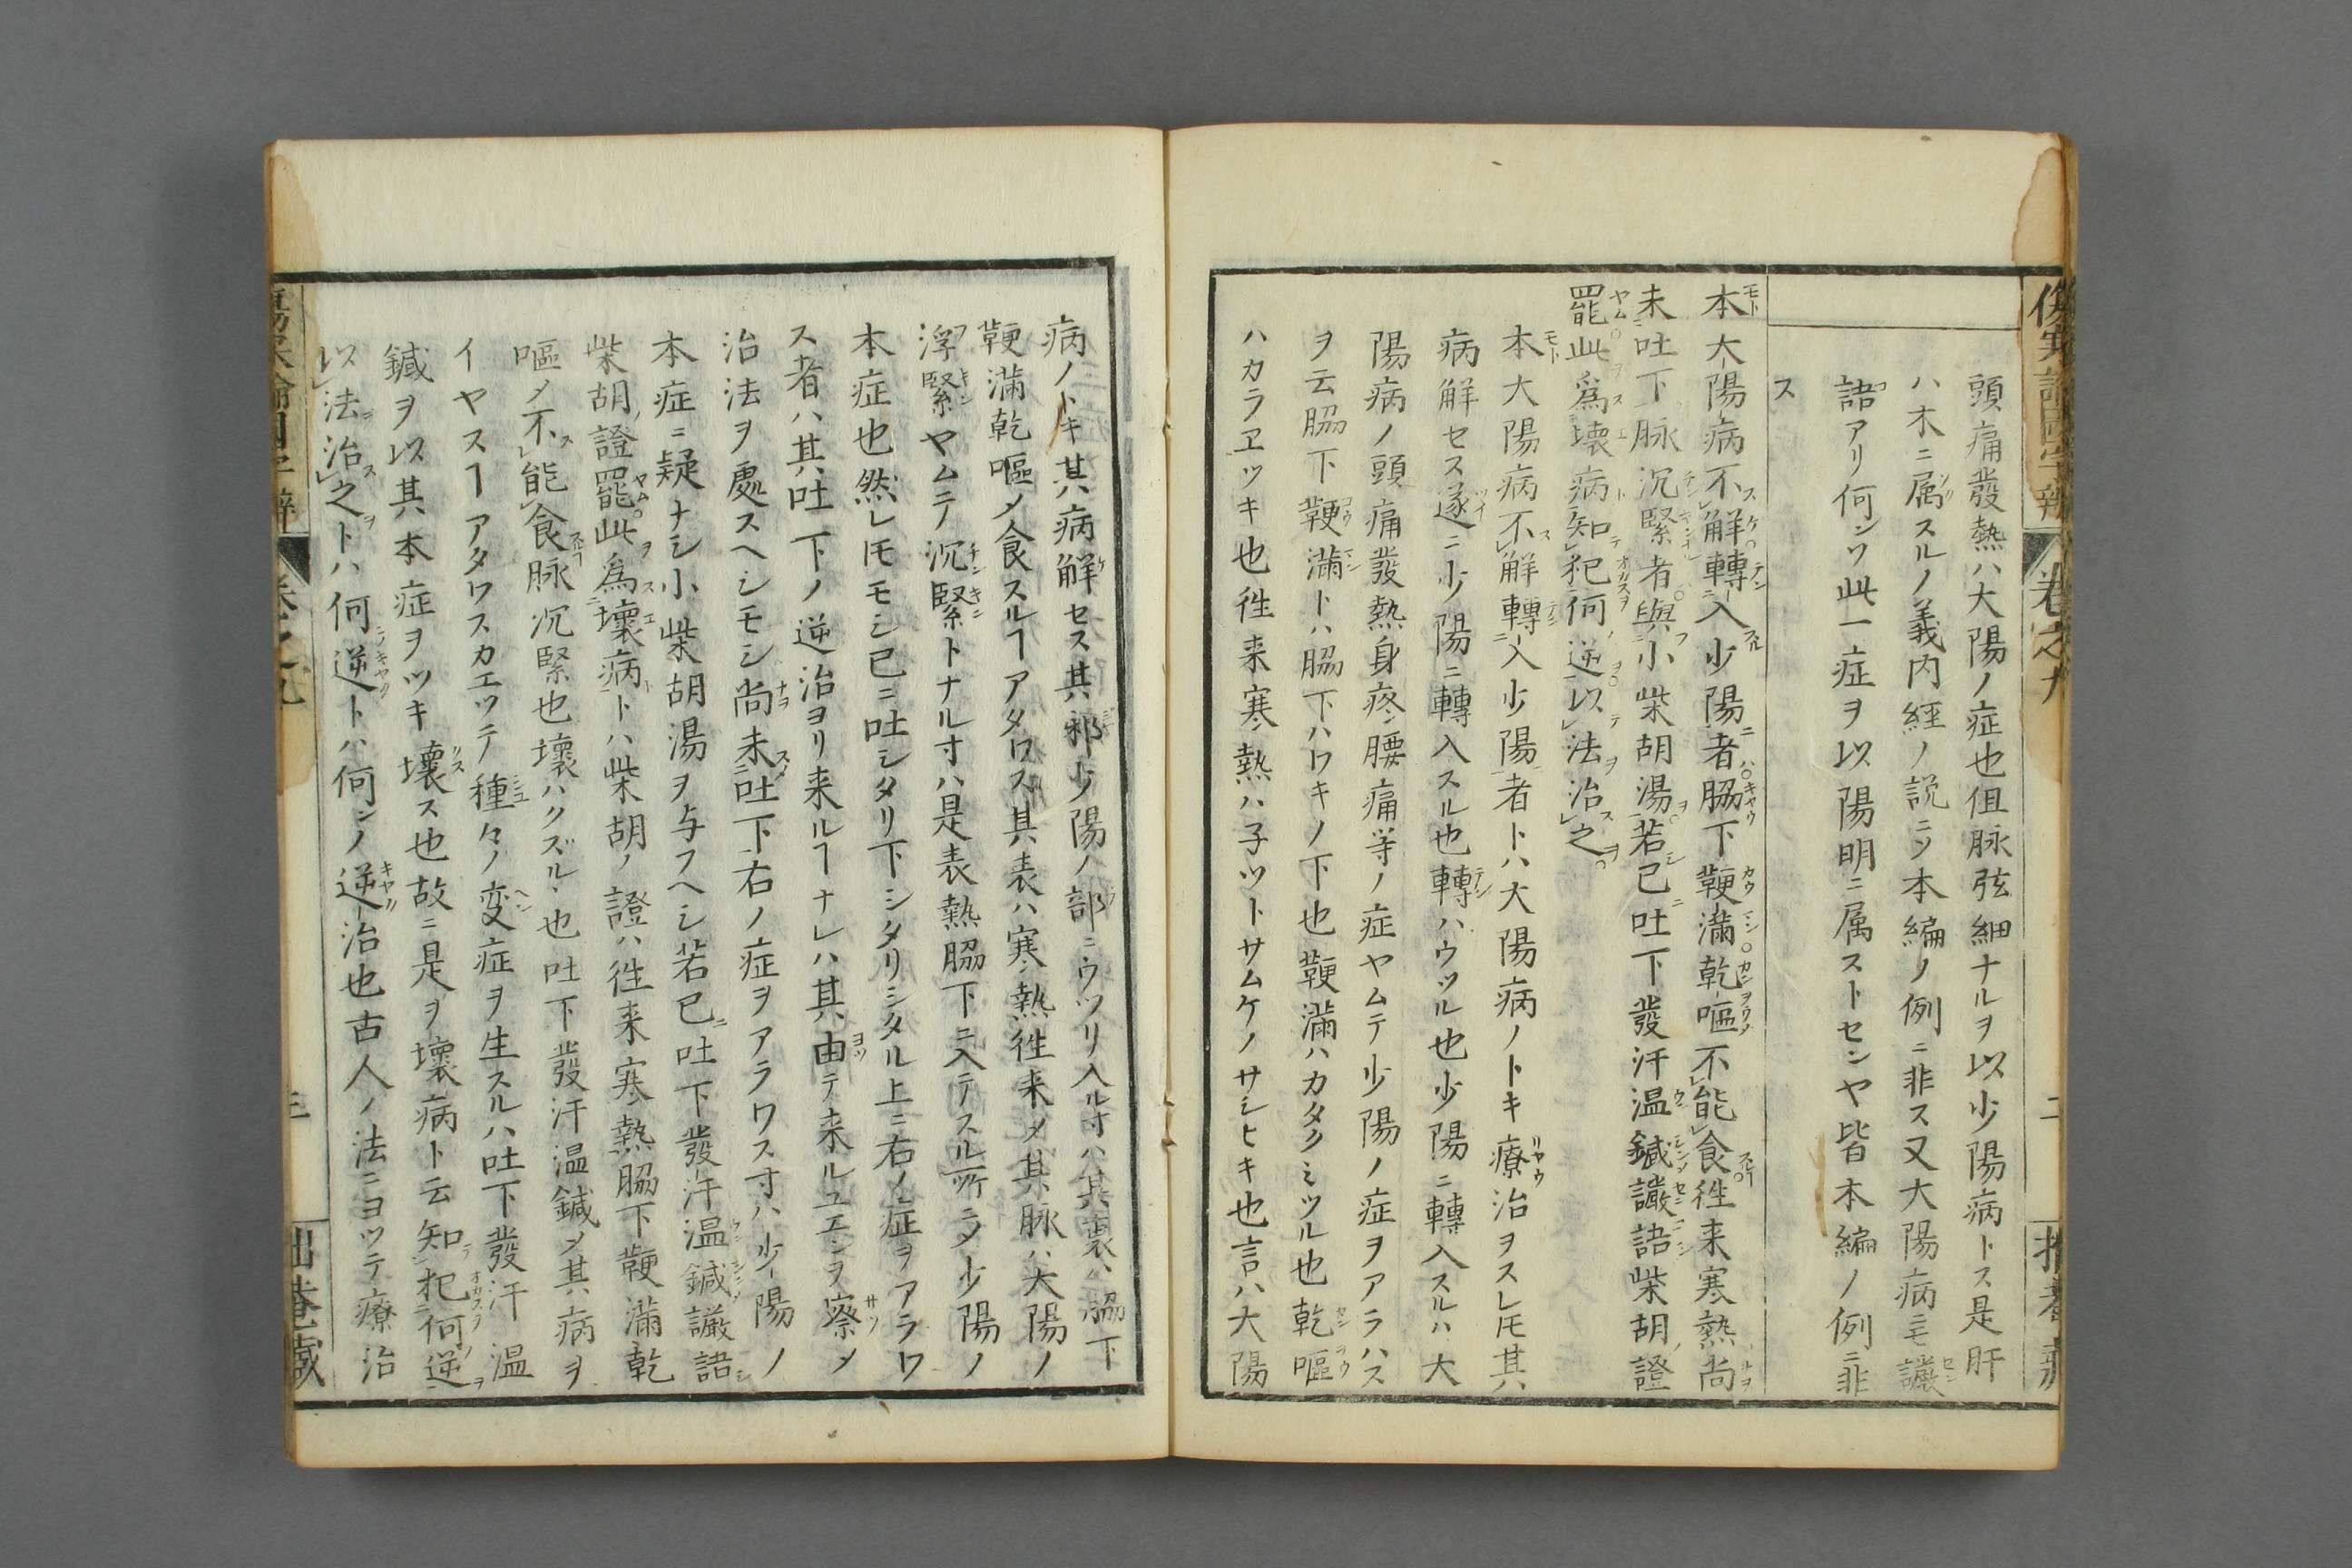 頭痛發熱ハ大陽ノ症也但脉弦細ナルヲ以少陽病トス是肝
ハ木ニ属スルノ義内経ノ説ニソ本編ノ例ニ非ス又大陽病ニモ讝
語アリ何ンソ此一症ヲ以陽明ニ属ストセンヤ皆本編ノ例ニ非
ス
本大陽病不解轉入少陽者脇下鞕滿乾嘔不能食徃来寒熱尚
未吐下脉沉緊者與小柴胡湯若已吐下發汗温鍼讝語柴胡證
罷此爲壊病知犯何逆以法治之
本大陽病不解轉入少陽者トハ大陽病ノトキ療治ヲスレ𪜈其
病解セス遂ニ少陽ニ轉入スル也轉ハウツル也少陽ニ轉入スルハ大
陽病ノ頭痛發熱身疼腰痛等ノ症ヤムテ少陽ノ症ヲアラハス
ヲ云脇下鞕滿トハ脇下ハワキノ下也鞕滿ハカタクミツル也乾嘔
ハカラヱツキ也徃来寒熱ハ子ツトサムケノサシヒキ也言ハ大陽
病ノトキ其病解セス其邪少陽ノ部ニウツリ入ル寸ハ其裏ハ脇下
鞕滿乾嘔メ食スルヿアタワス其表ハ寒熱徃来メ其脉ハ大陽ノ
浮緊ヤムテ沉緊トナル寸ハ是表熱脇下ニ入テスル所ニメ少陽ノ
本症也然レ𪜈モシ已ニ吐シタリ下シタリシタル上ニ右ノ症ヲアラワ
ス者ハ其吐下ノ逆治ヨリ来ルヿナレハ其由テ来ルユエンヲ察メ
治法ヲ處スヘシモシ尚未吐下右ノ症ヲアラワス寸ハ少陽ノ
本症ニ疑ナシ小柴胡湯ヲ与フヘシ若已吐下發汗温鍼讝語
柴胡證罷此爲壊病トハ柴胡ノ證ハ徃来寒熱脇下鞕滿乾
嘔メ不能食脉沉緊也壊ハクズルヽ也吐下發汗温鍼メ其病ヲ
イヤスヿアタワスカエツテ種々ノ変症ヲ生スルハ吐下發汗温
鍼ヲ以其本症ヲツキ壊ス也故ニ是ヲ壊病ト云知犯何逆
以法治之トハ何逆トハ何ンノ逆治也古人ノ法ニヨツテ療治